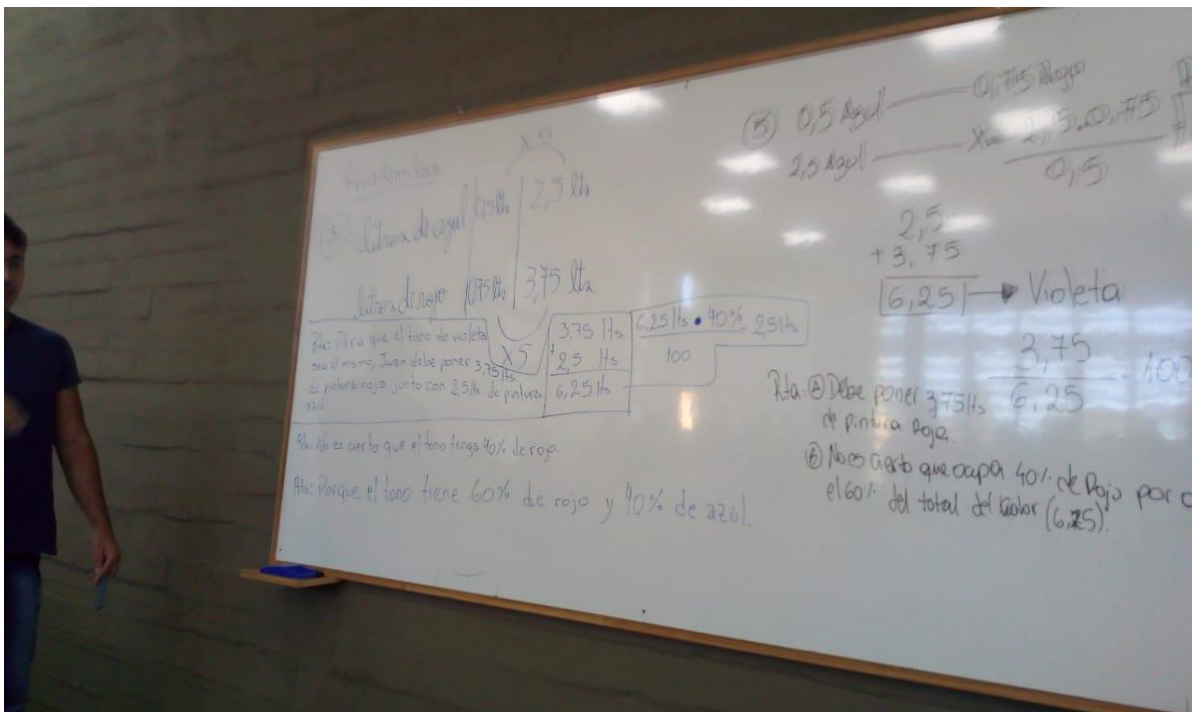 Problemitas
x 5
⑤ litros de azul | 0,5 lts | 2,5 lts
litros de rojo | 0,75 lts | 3,75 lts
x 5
Rta: Para que el tono de violeta
sea el mismo, Juan debe poner 3,75 lts
de pintura roja junto con 2,5 lts de pintura
azul
3,75 lts
+ 2,5 lts
6,25 lts
6,25 lts • 40% 2,5 lts
100
Rta: No es cierto que el tono tenga 40% de rojo.
Rta: Porque el tono tiene 60% de rojo y 40% de azul.
⑤ 0,5 Azul — 0,75 Rojo
2,5 Azul — X= 2,5.0,75
0,5
2,5
+ 3,75
6,25 → Violeta
3,75
6,25 . 100
Rta: ⓐ Debe poner 3,75 lts
de pintura Roja.
ⓑ No es cierto que ocupa 40% de Rojo por
el 60% del total del color (6,25).